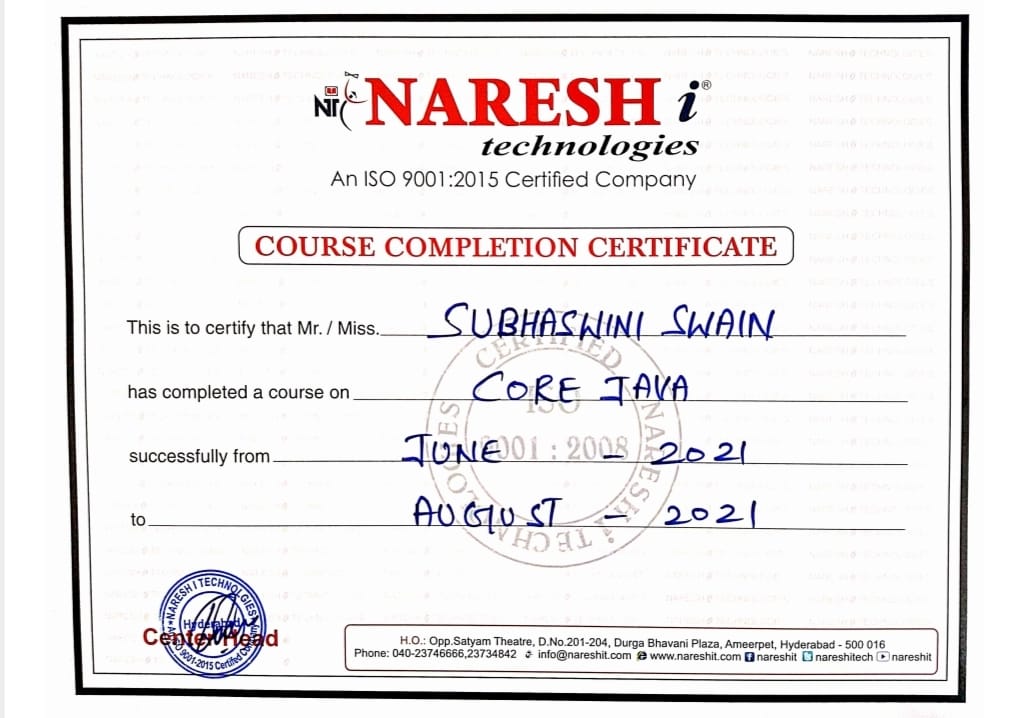 NT NARESH i®
technologies
An ISO 9001:2015 Certified Company
COURSE COMPLETION CERTIFICATE
This is to certify that Mr. / Miss. SUBHASWINI SWAIN
has completed a course on CORE JAVA
successfully from JUNE - 2021
to AUGUST - 2021
CERTIFIED
ISO
9001 : 2008
NARESH i TECHNOLOGIES
NARESH I TECHNOLOGIES
Hyderabad
9001-2015 Certified
Center Head
H.O.: Opp.Satyam Theatre, D.No.201-204, Durga Bhavani Plaza, Ameerpet, Hyderabad - 500 016
Phone: 040-23746666,23734842 info@nareshit.com www.nareshit.com nareshit nareshitech nareshit